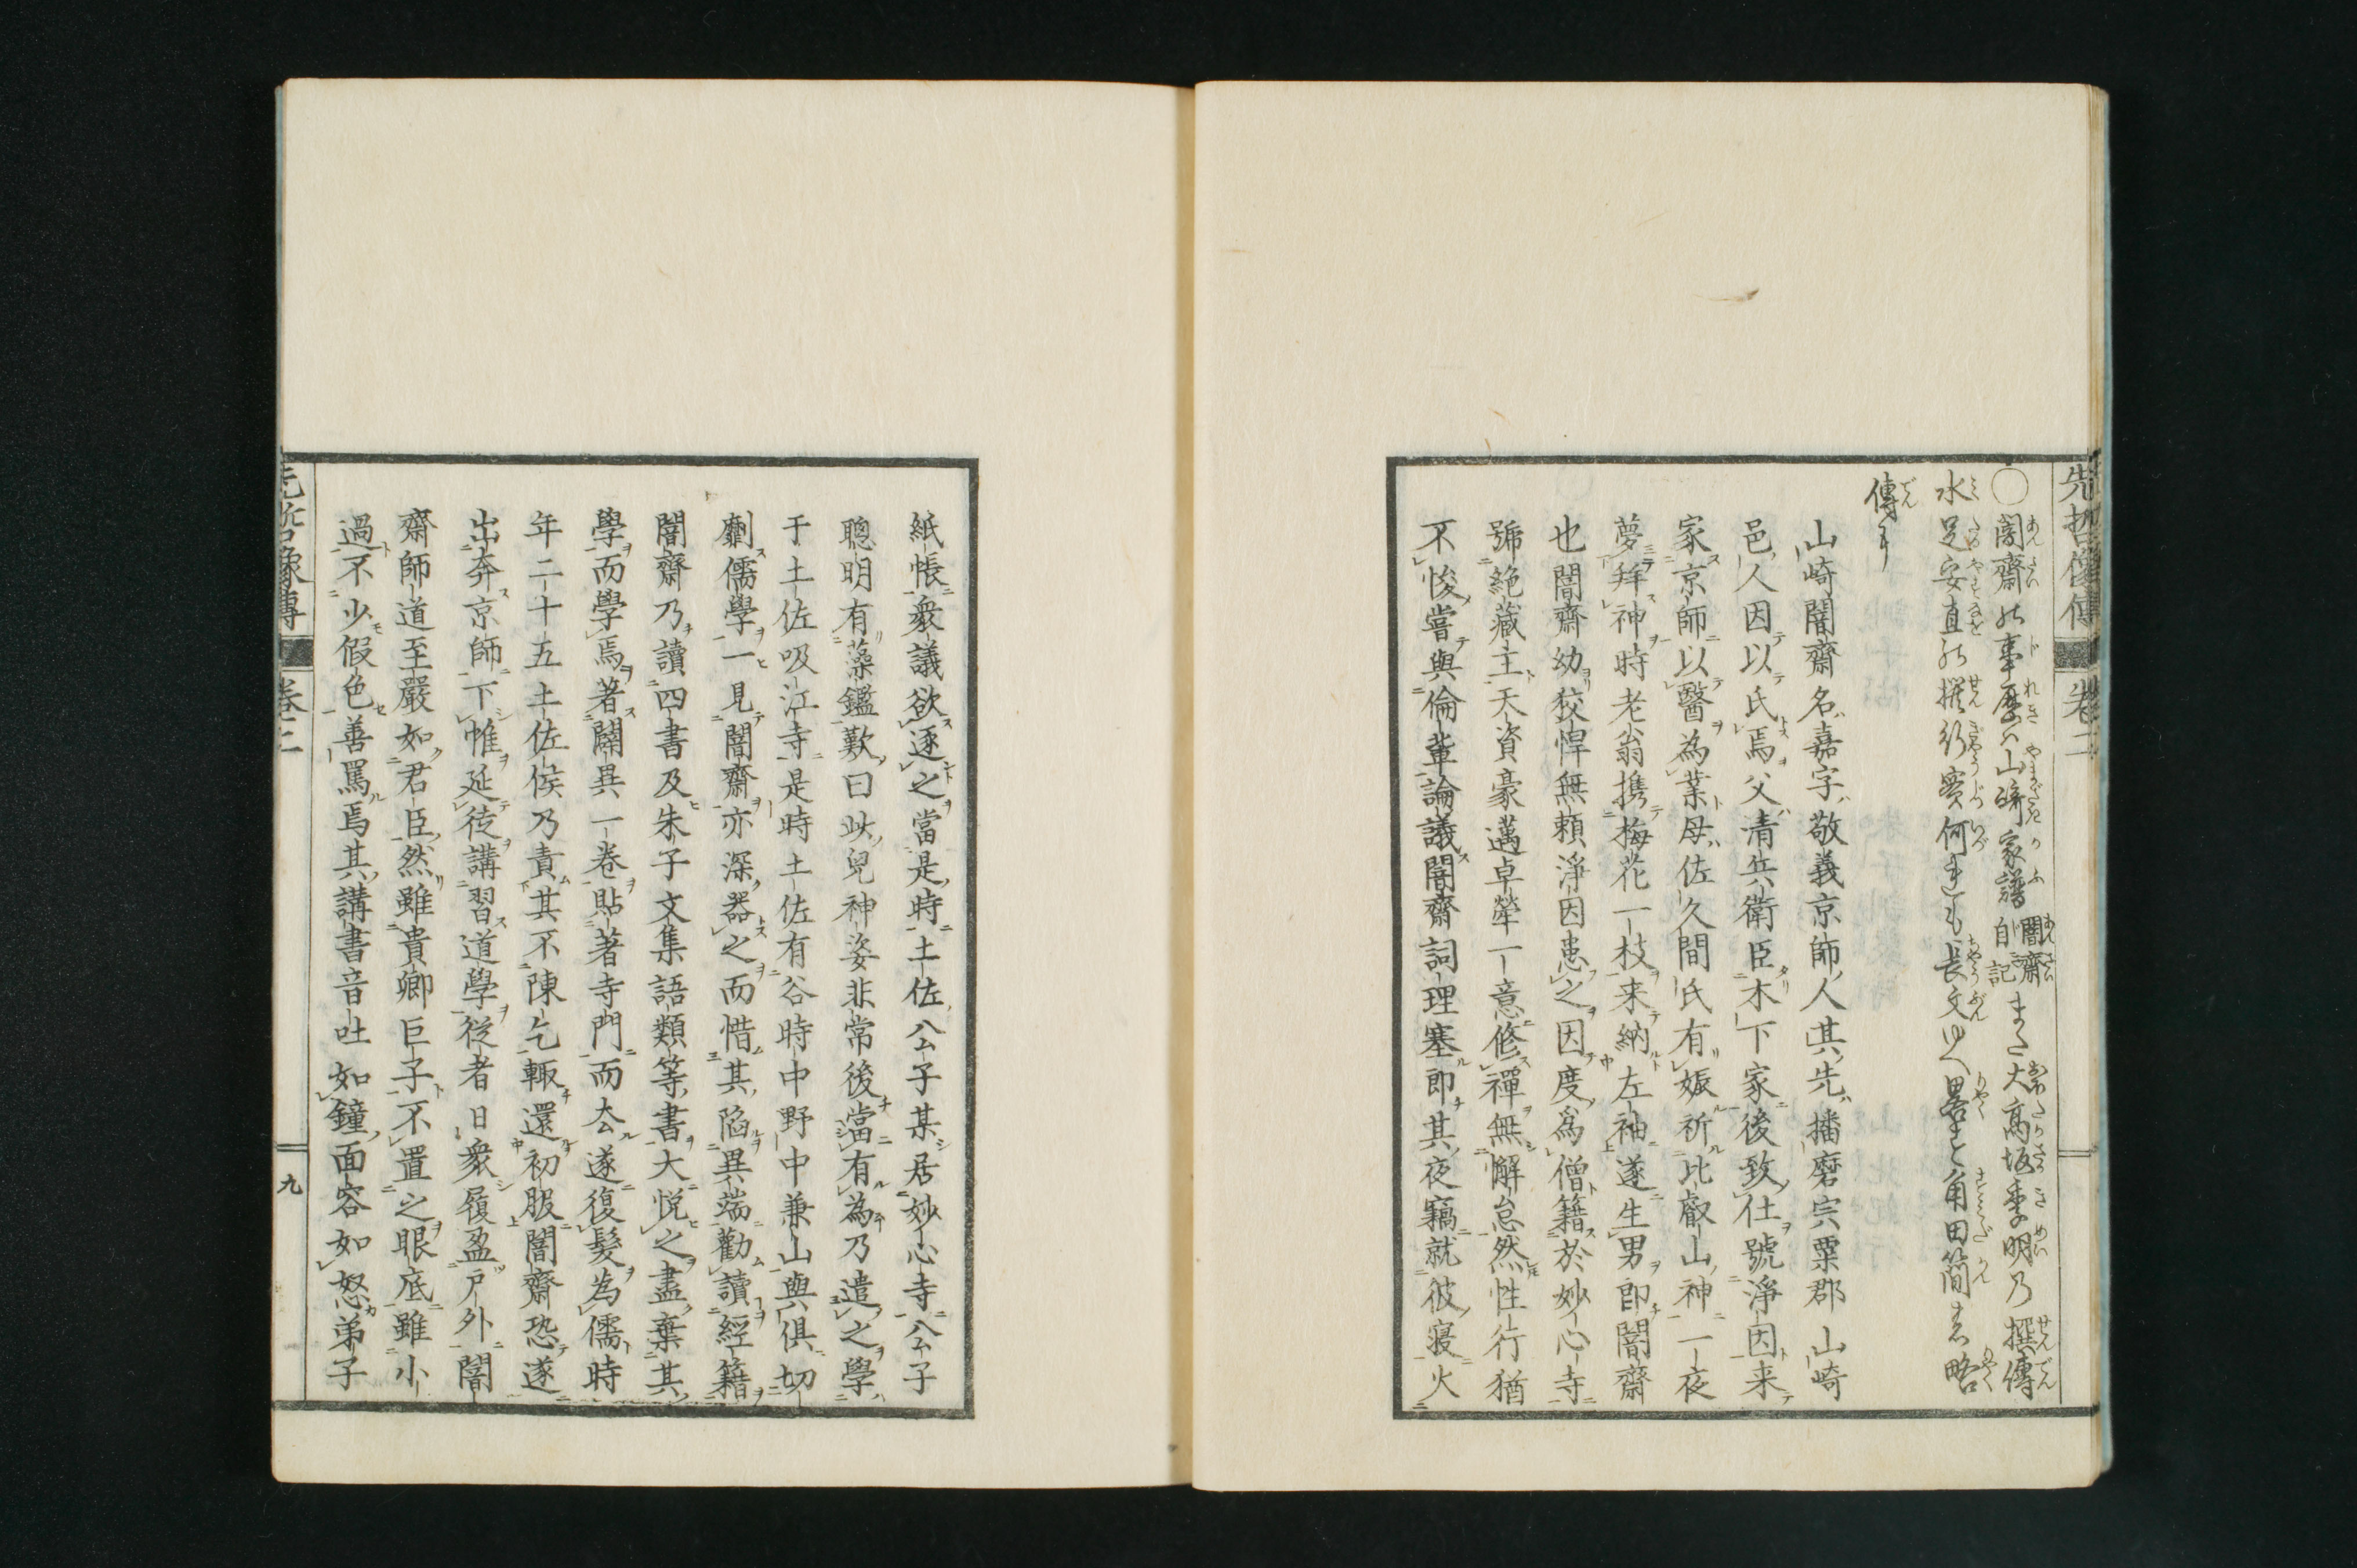 先哲像傳 卷二
○闇齋の事歴ハ山崎家譜闇齋自記また大高坂季明乃撰傳
水足安直の撰行實何れも長文ゆへ畧之角田簡 略
傳
山崎闇齋名嘉字敬義京師人其先播磨宍粟郡山崎
邑人因以氏焉父清兵衛臣木下家後致仕號淨因来
家京師以醫為業母佐久間氏有娠祈比叡山神一夜
夢拜神時老翁携梅花一枝来納左袖遂生男即闇齋
也闇齋幼狡悍無頼淨因患之因度為僧籍於妙心寺
號絶藏主天資豪邁卓犖一意修禪無懈怠然性行猶
不悛嘗與倫輩論議闇齋詞理塞即其夜竊就彼寝火
紙帳衆議欲逐之當是時土佐公子某居妙心寺公子
聰明有藻鑑歎曰此兒神姿非常後當有為乃遣之學
于土佐吸江寺是時土佐有谷時中野中兼山與倶切
劘儒學一見闇齋亦深器之而惜其陷異端勸讀經籍
闇齋乃讀四書及朱子文集語類等書大悦之盡棄其
學而學焉著闢異一卷貼著寺門而去遂復髪為儒時
年二十五土佐侯乃責其不陳乞輙還初服闇齋恐遂
出奔京師下帷延徒講習道學從者日衆履盈戸外闇
齋師道至嚴如君臣然雖貴卿巨子不置之眼底雖小
過不少假色善罵焉其講書音吐如鐘面容如怒弟子
先哲像傳 卷二 九